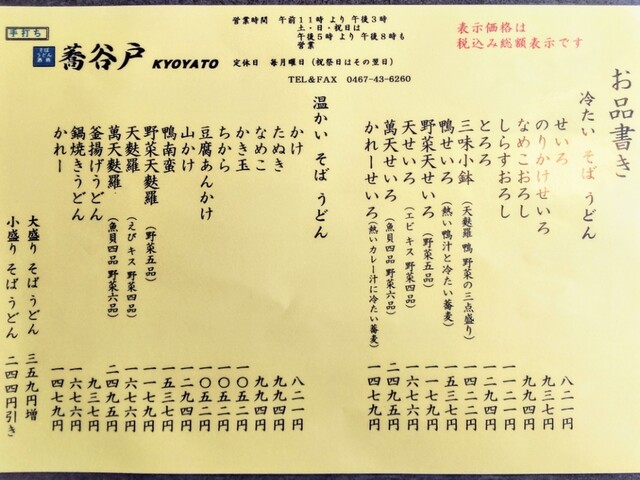 手打ち
そば
うどん
酒肴
蕎谷戸 KYOYATO
営業時間 午前11時 より 午後3時
土・日・祝日は
午後5時 より 午後8時も
営業
定休日 毎月曜日(祝祭日はその翌日)
TEL&FAX 0467-43-6260
表示価格は
税込み総額表示です
お品書き
冷たい そば うどん
せいろ 八二一円
のりかけせいろ 九三七円
なめこおろし 九九四円
しらすおろし 一一二一円
とろろ 一二九四円
三味小鉢 (天麩羅 鴨 野菜の三点盛り) 一四二二円
鴨せいろ (熱い鴨汁と冷たい蕎麦) 一五三七円
野菜天せいろ (野菜五品) 一一七九円
天せいろ (エビ キス 野菜四品) 一六七六円
萬天せいろ (魚貝四品 野菜六品) 二四九五円
かれーせいろ (熱いカレー汁に冷たい蕎麦) 一四七九円
温かい そば うどん
かけ 八二一円
たぬき 九九四円
なめこ 九九四円
かき玉 一〇五二円
ちから 一〇五二円
豆腐あんかけ 一〇五二円
山かけ 一二九四円
鴨南蛮 一五三七円
野菜天麩羅 (野菜五品) 一一七九円
天麩羅 (えび キス 野菜四品) 一六七六円
萬天麩羅 (魚貝四品 野菜六品) 二四九五円
釜揚げうどん 九三七円
鍋焼きうどん 一六七六円
かれー 一四七九円
大盛り そば うどん 三五九円増
小盛り そば うどん 二四四円引き